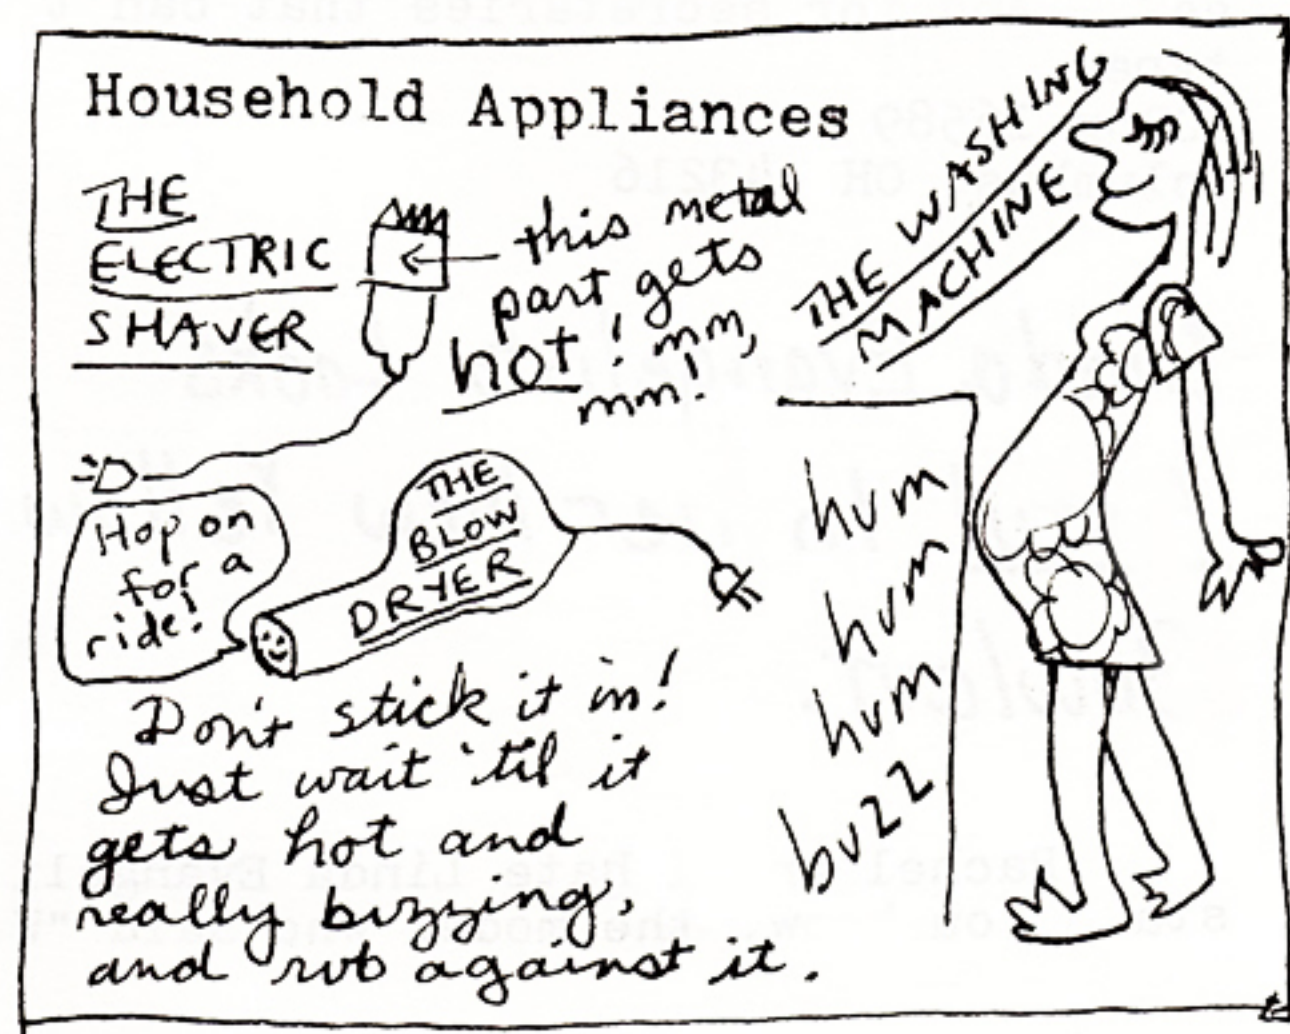 Household Appliances
THE
ELECTRIC
SHAVER
this metal
part gets
hot! mm,
mm!
THE WASHING
MACHINE
Hop on
for a
ride!
THE
BLOW
DRYER
Don't stick it in!
Just wait 'til it
gets hot and
really bizzing,
and rub against it.
hum
hum
hum
buzz